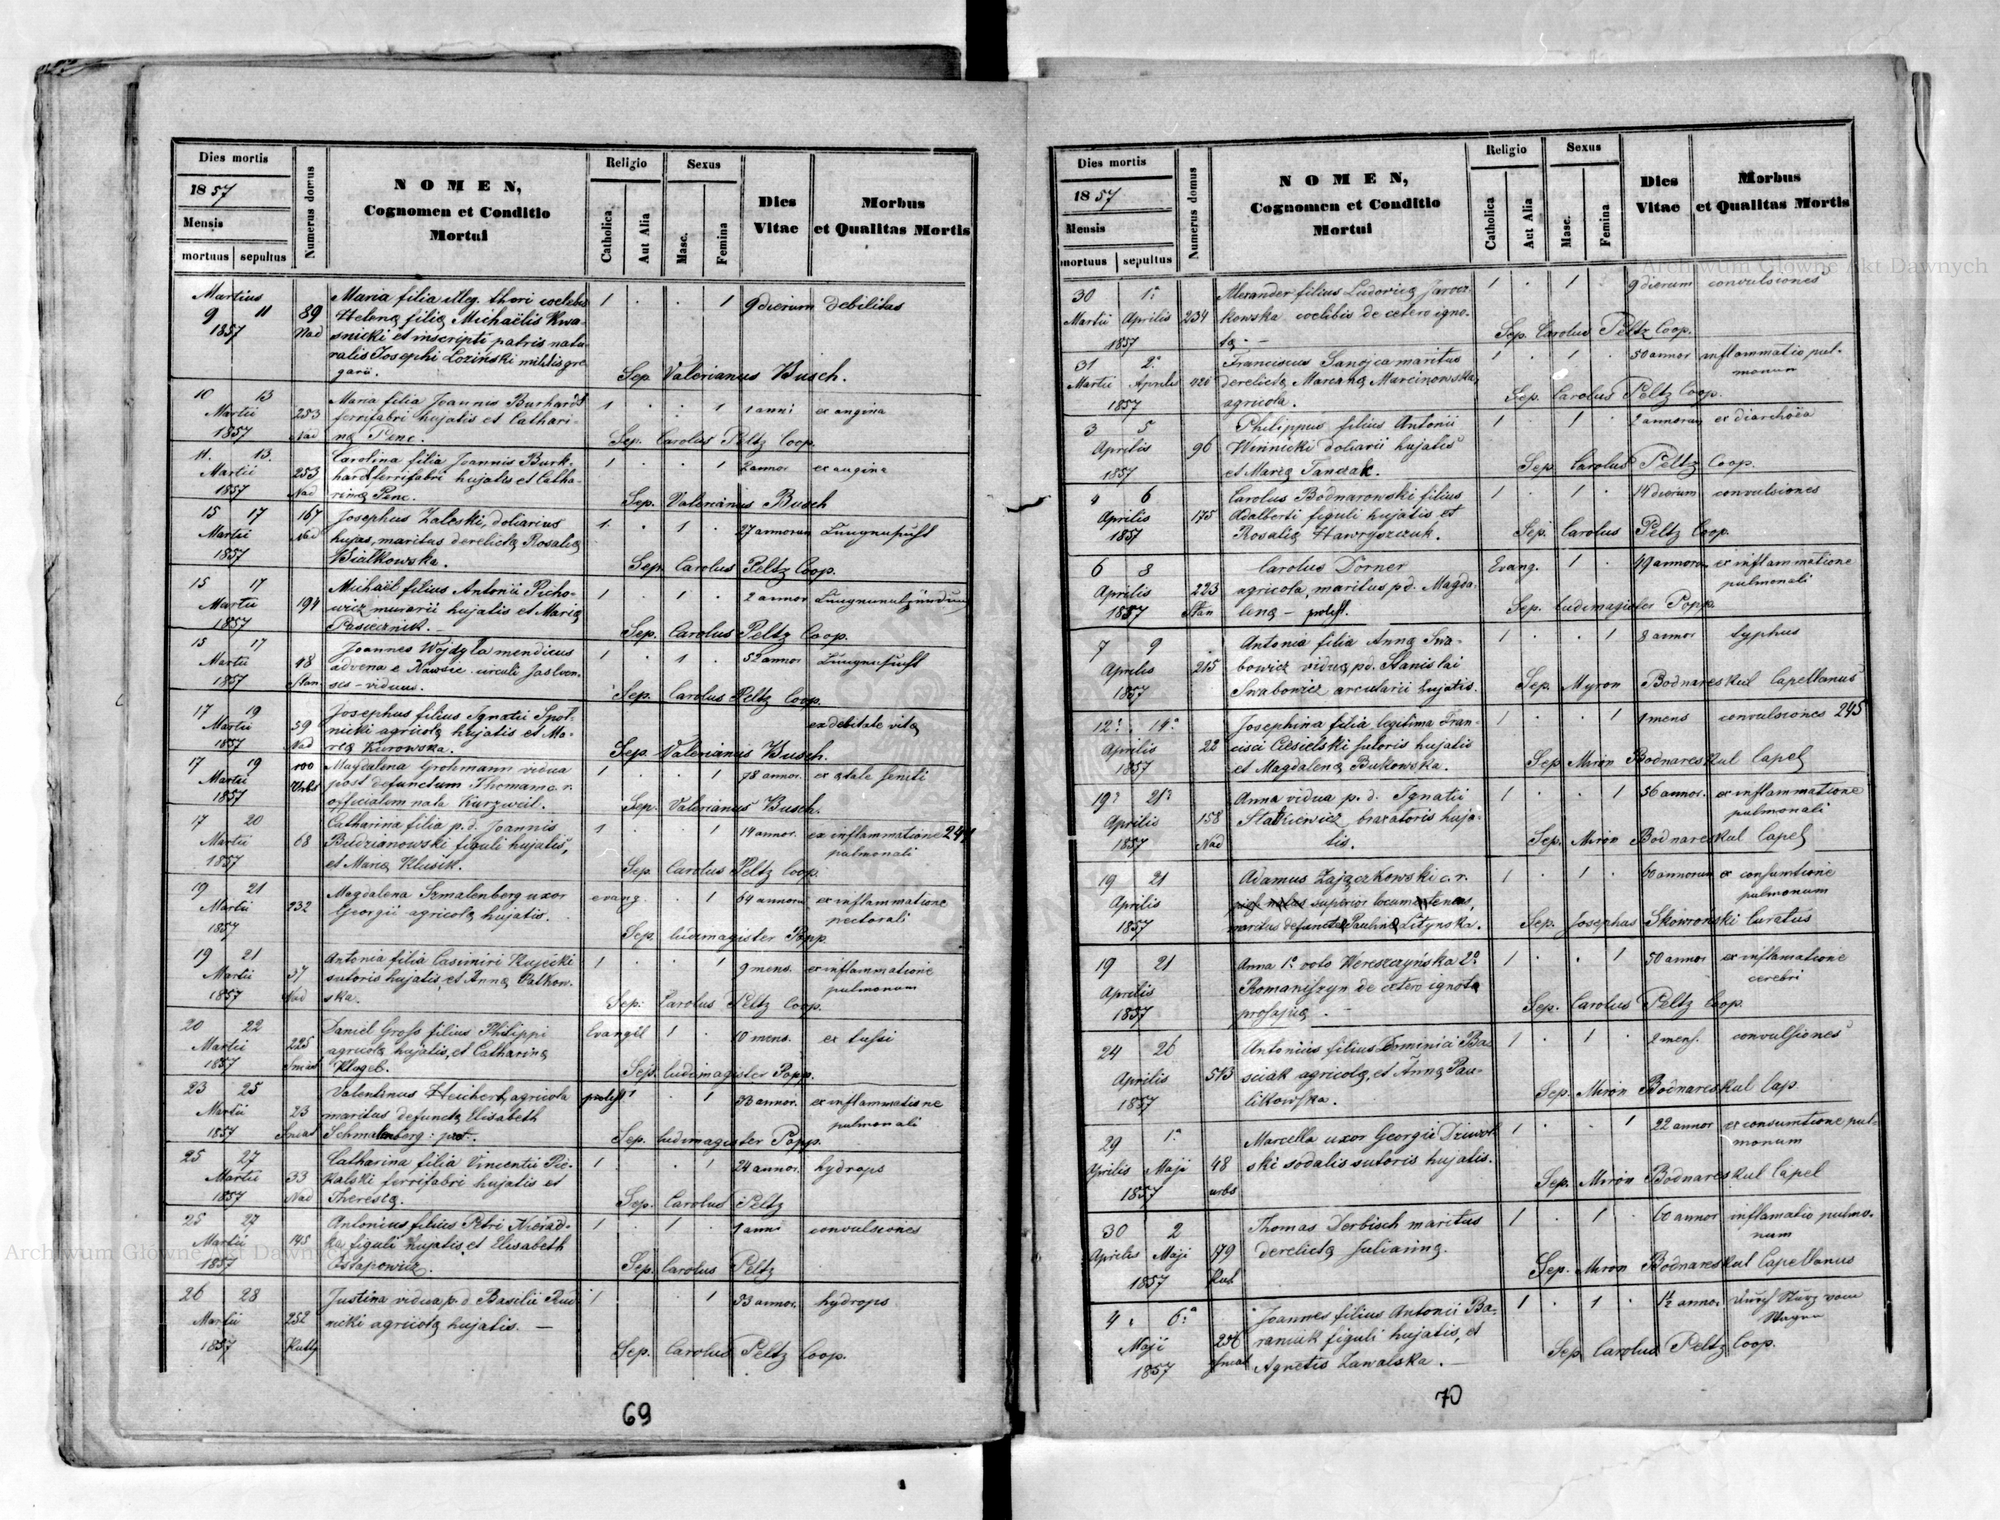 Dies mortis
Numerus domus
NOMEN,
Cognomen et Conditio
Mortui
Religio
Sexus
Dies
Vitae
Morbus
et Qualitas Mortis
1857
Mensis
mortuus sepultus
Catholica
Aut Alia
Masc.
Femina
Martius 9 11 1857
89 Nad
Maria filia illeg. thori coelebis
Helenę filię Michaëlis Kwa-
śnicki et inscripti patris natu-
ralis Josephi Łoziński militis gre-
garii.
1 . . 1 9 dierum debilitas
Sep. Valerianus Busch.
10 13 Martii 1857
253 Nad
Maria filia Joannis Burhardt
ferrifabri hujatis et Cathari-
nę Penc.
1 . . 1 1 anni ex angina
Sep. Carolus Peltz Coop.
11. 13. Martii 1857
253 Nad
Carolina filia Joannis Burk-
hard ferrifabri hujatis et Catha-
rinę Penc.
1 . . 1 2 annor ex angina
Sep. Valerianus Busch
15 17 Martii 1857
167 Nad
Josephus Zaleski, doliarius
hujas, maritus derelictę Rosalię
Białkowska.
1. . 1 . 27 annorum Lungensucht
Sep. Carolus Peltz Coop.
15 17 Martii 1857
194
Michaël filius Antonii Picho-
wicz murarii hujatis et Marię
Pasiecznik. —
1 . 1 . 2 annor
Sep. Carolus Peltz Coop.
15 17 Martii 1857
48 Stan.
Joannes Wojdyła mendicus
advena e Nawsie circuli Jaslven-
sis - viduus.
1 . 1 . 52 annor Lungensucht
Sep. Carolus Peltz Coop.
17 19 Martii 1857
59 Nad
Josephus filius Ignatii Spot-
nicki agricolę hujatis et Ma-
rię Kurowska.
ex debitate vitę
Sep. Valerianus Busch.
17 19 Martii 1857
100 Urbs
Magdalena Grohmann vidua
post defunctum Thomam c. r.
officialem nata Kurzweil.
1 . . 1 78 annor. ex ętate senili
Sep. Valerianus Busch.
17 20 Martii 1857
68
Catharina filia p. d. Joannis
Budzianowski figuli hujatis,
et Marię Klusik.
1 . . 1 14 annor. ex inflammatione 244
pulmonali
Sep. Carolus Peltz Coop.
19 21 Martii 1857
232
Magdalena Szmalenberg uxor
Georgii agricolę hujatis.
evang. . 1 64 annoru ex inflammatione
pectorali
Sep. ludimagister Popp
19 21 Martii 1857
57 Nad
Antonia filia Casimiri Kujecki
sutoris hujatis, et Annę Patkow-
ska.
1 . . 1 9 mens. ex inflammatione
pulmonum
Sep: Carolus Peltz Coop.
20 22 Martii 1857
225
Daniel Gross filius Philippi
agricolę hujatis, et Catharinę
Klogel.
Evangel 1 . 10 mens. ex tussi
Sep. ludimagister Popp.
23 25 Martii 1857
23 Sniat
Valentinus Heichert, agricola
maritus defunctę Elisabeth
Schmalenberg: prot.
protest . 1 53 annor. ex inflammatione
pulmonali
Sep. ludimagister Popp.
25 27 Martii 1857
33 Nad
Catharina filia Vincentii Pie-
kalski ferrifabri hujatis et
Theresię.
1 . . 1 24 annor. hydrops
Sep. Carolus Peltz
25 27 Martii 1857
145
Antonius filius Petri Nieiad-
ka figuli hujatis, et Elisabeth
Ostapowicz.
1 . 1 . 1 anni convulsiones
Sep. Carolus Peltz
26 28 Martii 1857
252 Kutty
Justina vidua p. d. Basilii Rud-
nicki agricolę hujatis. —
1 . . 1 53 annor. hydrops
Sep. Carolus Peltz Coop.
69
Dies mortis
Numerus domus
NOMEN,
Cognomen et Conditio
Mortui
Religio
Sexus
Dies
Vitae
Morbus
et Qualitas Mortis
1857
Mensis
mortuus sepultus
Catholica
Aut Alia
Masc.
Femina
30 1a Martii Aprilis 1857
234
Alexander filius Ludovicę Jarocz-
kowska coelibis de cetero igno-
tę. —
1 . 1 9 dierum convulsiones
Sep. Carolus Peltz Coop.
31 2a Martii Aprilis 1857
426
Franciscus Sanojca maritus
derelictę Mariannę Marcinowska,
agricola.
1 . 1 . 50 annor inflammatio pul-
monum
Sep. Carolus Peltz Coop.
3 5 Aprilis 1857
96
Philippus filius Antonii
Winnicki doliarii hujatis
et Marię Tanczak.
1 . 1 . 2 annorum ex diarchöea
Sep. Carolus Peltz Coop.
4 6 Aprilis 1857
175
Carolus Bodnarowski filius
Adalberti figuli hujatis et
Rosalię Hawryszczuk.
1 . 1 . 14 dierum convulsiones
Sep. Carolus Peltz Coop.
6 8 Aprilis 1857
223 Stan
Carolus Dörner
agricola, maritus p d. Magda-
lenę - protest.
Evang. 1 . 49 annoru ex inflammatione
pulmonali
Sep. ludimagister Popp.
7 9 Aprilis 1857
215
Antonia filia Annę Swa-
bowicz viduę p. d. Stanislai
Swabowicz arcularii hujatis.
1 . . 1 8 annor typhus
Sep. Myron Bodnareskul Capellanus
12a 14a Aprilis 1857
22
Josephina filia legitima Fran-
cisci Ciesielski sutoris hujatis
et Magdalenę Bukowska.
1 . . 1 1 mens convulsiones 245
Sep. Miron Bodnareskul Capel
19a 21a Aprilis 1857
158 Nad
Anna vidua p. d. Ignatii
Statkiewicz braxatoris huja-
tis.
1 . . 1 56 annor. ex inflammatione
pulmonali
Sep. Miron Bodnareskul Capel
19 21 Aprilis 1857
Adamus Zajączkowski c. r.
superior locumtenens,
maritus defunctę Paulinę Lityńska.
1 . 1 . 60 annorum ex consumtione
pulmonum
Sep. Josephus Skowroński Curatus
19 21 Aprilis 1857
Anna 1o voto Wereszczyńska 2o
Romaniszyn de cetero ignotę
prosapię.
1 . . 1 50 annor ex inflamatione
cerebri
Sep. Carolus Peltz Coop.
24 26 Aprilis 1857
513
Antonius filius Dominici Ba-
sciak agricolę, et Annę Pau-
likowska.
1 . 1 . 2 mens. convulsiones
Sep. Miron Bodnareskul Cap.
29 1a Aprilis Maji 1857
48 urbs
Marcella uxor Georgii Dziwol-
ski sodalis sutoris hujatis.
1 . . 1 22 annor ex consumtione pul-
monum
Sep. Miron Bodnareskul Capel
30 2 Aprilis Maji 1857
179 Kut
Thomas Derbisch maritus
derelictę Juliannę.
1 . 1 . 60 annor inflamatio pulmo-
num
Sep. Miron Bodnareskul Capellanus
4a 6a Maji 1857
256 Sniat
Joannes filius Antonii Ba-
raniuk figuli hujatis, et
Agnetis Zawalska. —
1 . 1 . 1½ annor. durch Sturz vom
Wagen
Sep Carolus Peltz Coop.
70
Archiwum Główne Akt Dawnych
Archiwum Główne Akt Dawnych